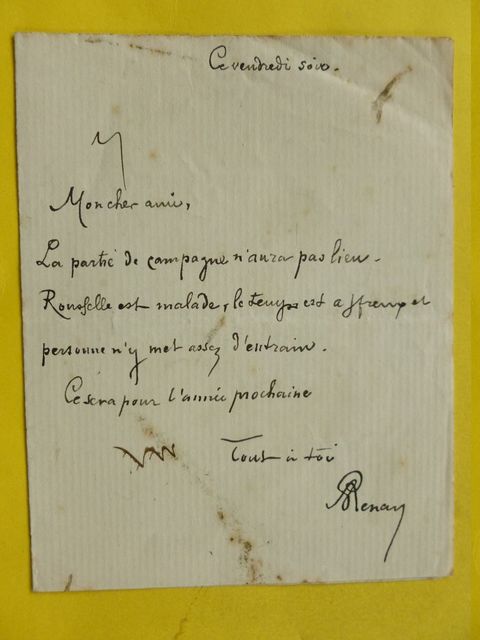 Ce vendredi soir.
Mon cher ami,
La partie de campagne n'aura pas lieu.
Rousselle est malade, le temps est affreux et
personne n'y met assez d'entrain.
Ce sera pour l'année prochaine
Tout à toi